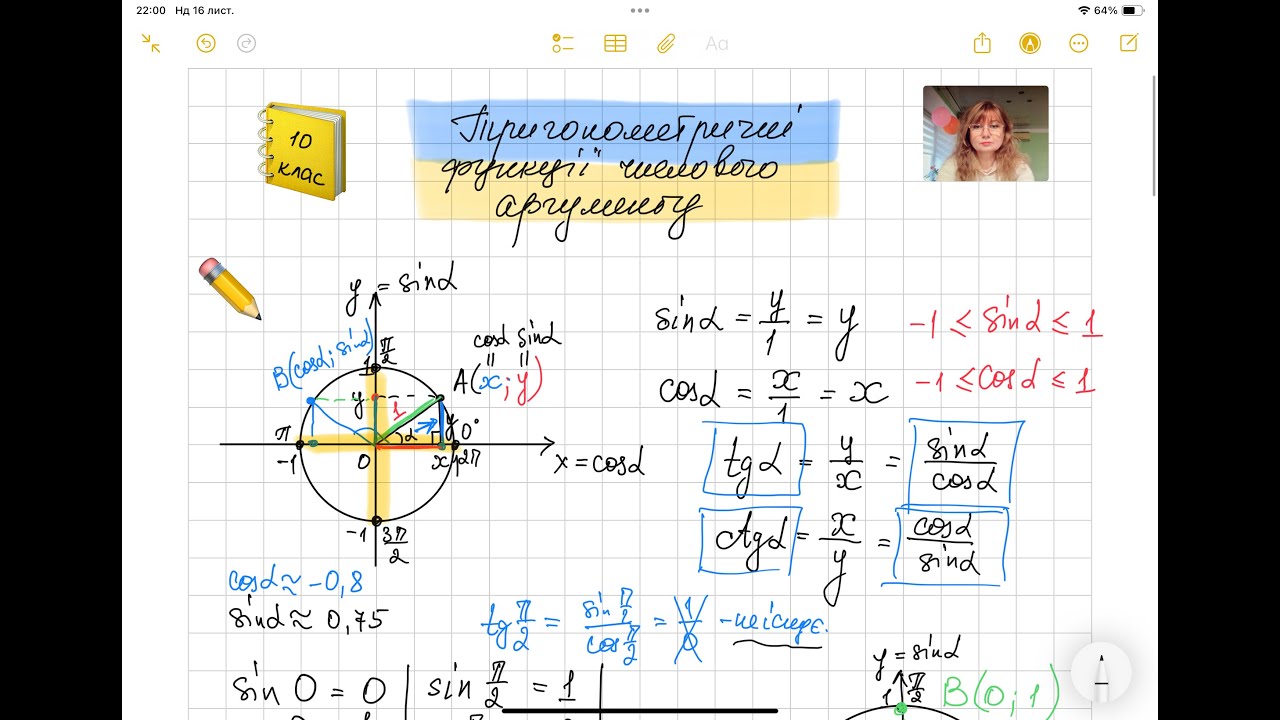 22:00 Нд 16 лист.
64%
Aa
10
клас
Тригонометричні
функції числового
аргументу
y = sinα
cosα sinα
" "
A(x; y)
B(cosα; sinα)
1 π/2
y
1
α
y
0°
π
-1
0
x 1 2π
x = cosα
-1 3π/2
sinα = y/1 = y
-1 ≤ sinα ≤ 1
cosα = x/1 = x
-1 ≤ cosα ≤ 1
tgα = y/x = sinα/cosα
ctgα = x/y = cosα/sinα
cosα ≈ -0,8
sinα ≈ 0,75
tg π/2 = sin π/2 / cos π/2 = 1/0 - не існує.
sin 0 = 0
sin π/2 = 1
y = sinα
1 π/2
B(0; 1)